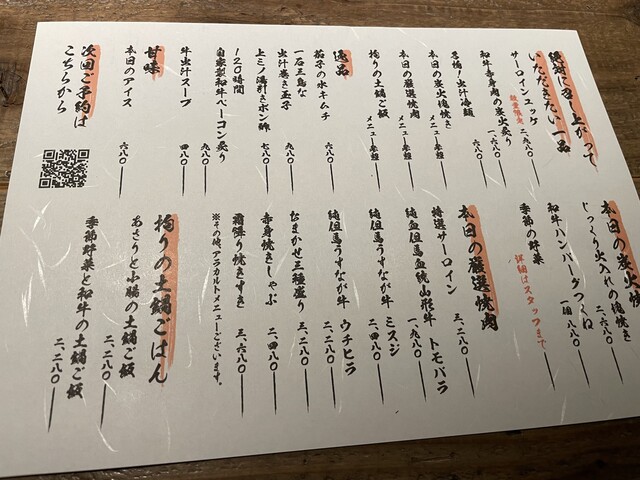 絶対に召し上がって
いただきたい一品
サーロインユッケ 数量限定 二、九八〇
和牛赤身肉の炭火炙り 一、六八〇
名物！出汁冷麺 六八〇
本日の炭火塊焼き メニュー参照
本日の厳選焼肉 メニュー参照
拘りの土鍋ご飯 メニュー参照
逸品
茄子の水キムチ 六八〇
一石三鳥な
出汁巻き玉子 九八〇
上ミノ湯引きポン酢 七八〇
120時間
自家製和牛ベーコン炙り 九八〇
牛出汁スープ 四八〇
甘味
本日のアイス 六八〇
次回ご予約は
こちらから
本日の炭火塊
じっくり火入れの塊焼き 二、六八〇
和牛ハンバーグつくね 一個 八八〇
季節の野菜 詳細はスタッフまで
本日の厳選焼肉
特選サーロイン 三、二八〇
純血但馬血統山形牛 トモバラ 一、九八〇
純但馬うすなが牛 ミスジ 二、二八〇
純但馬うすなが牛 ウチヒラ 二、二八〇
おまかせ三種盛り 三、二八〇
赤身焼きしゃぶ 二、四八〇
霜降り焼きすき 三、六八〇
※その他、アラカルトメニューございます。
拘りの土鍋ごはん
あさりと小腸の土鍋ご飯 二、二八〇
季節野菜と和牛の土鍋ご飯 二、二八〇